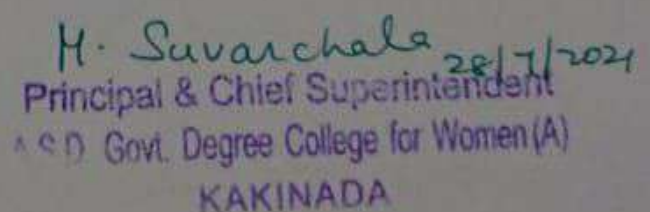 M. Suvarchala 28/7/2021
Principal & Chief Superintendent
A S D Govt. Degree College for Women (A)
KAKINADA